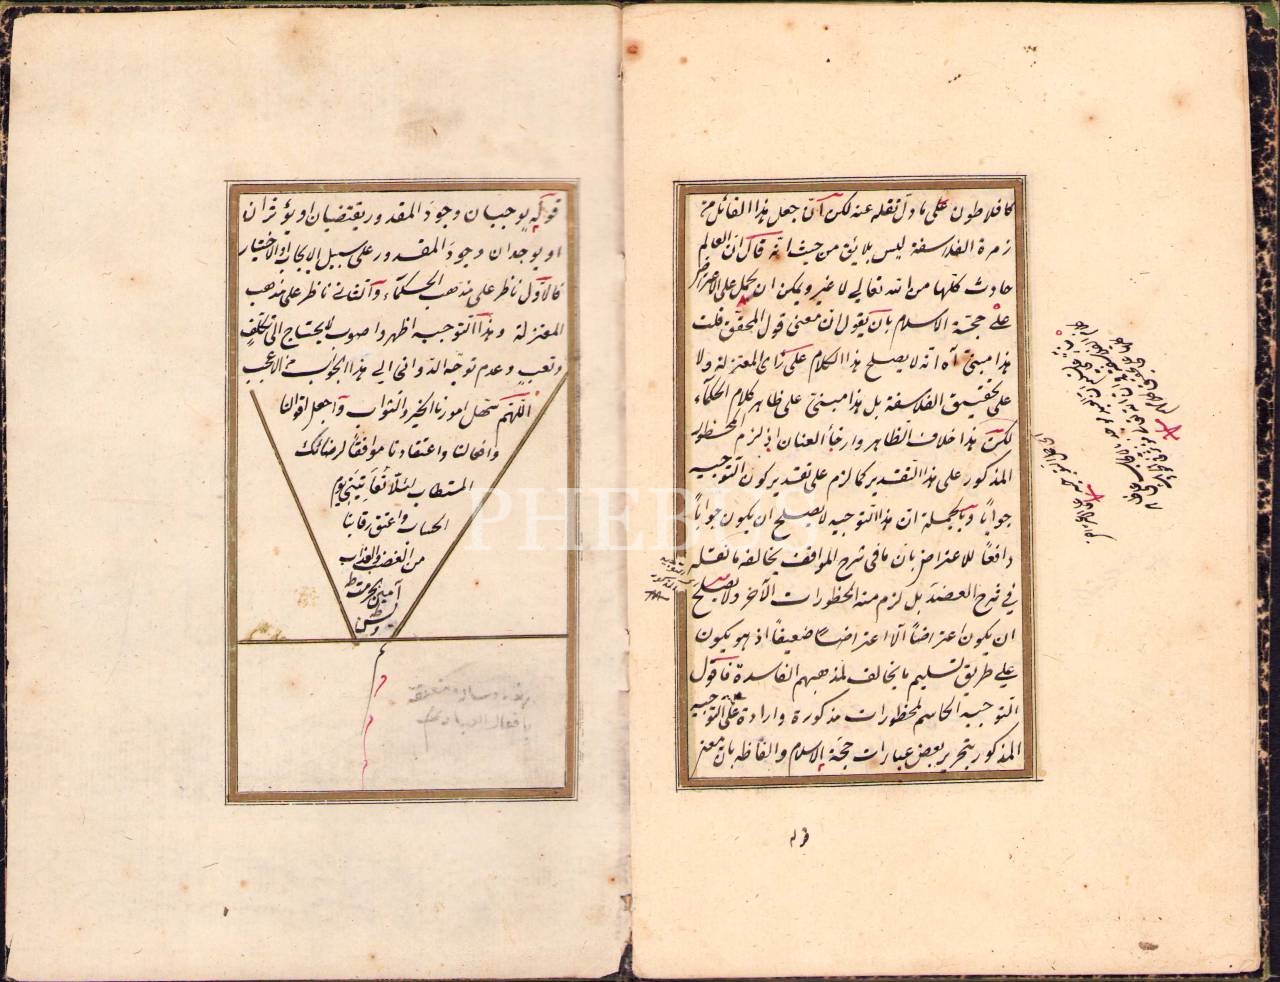 كافلاطون على ما دل نقله عنه لكن آن جعل هذا القائل من
زمرة الفلاسفة ليس بلايق من حيث انه قال ان العالم
حادث كلها من الله تعالى لا غير ويمكن ان يحمل على الاعتراض
على حجة الاسلام بان يقول ان معنى قول المحقق قلت
هذا مبنى آه انه لا يصلح هذا الكلام على رأى المعتزلة ولا
على تحقيق الفلاسفة بل هذا مبنى على ظاهر كلام الحكماء
لكن هذا خلاف الظاهر وارخاء العنان اذ لزم المحظور
المذكور على هذا التقدير كما لزم على تقدير كون التوجيه
جوابا وبالجملة ان هذا التوجيه لا يصلح ان يكون جوابا
دافعا للاعتراض بان ما فى شرح المواقف يخالفه ما نقله
فى شرح العضد بل لزم منه المحظورات الآخر ولا يصلح
ان يكون اعتراضا الا اعتراضا ضعيفا اذ هو يكون
على طريق تسليم ما يخالف لمذهبهم الفاسدة فاقول
التوجيه الحاسم لمحظورات مذكورة وارادة على التوجيه
المذكور بتحرير بعض عبارات حجة الاسلام والفاظه بان معنى
قوله
قوله يوجبان وجود المقدور يقتضيان او يؤثران
او يوجدان وجود المقدور على سبيل الايجاب او الاختيار
فالاول ناظر على مذهب الحكماء والثانى ناظر على مذهب
المعتزلة وهذا التوجيه اظهر واصوب لا يحتاج الى تكلف
وتعب وعدم توجه الدوانى الى هذا الجواب من الاعجب
اللهم سهل امورنا الخير والثواب واجعل اقوالنا
وافعالنا واعتقادنا موافقا لرضائك
المستطاب لئلا يوم
الحساب واعتق رقابنا
من الغضب والعذاب
آمين بحرمة طه
ويس
م
PHEBUS